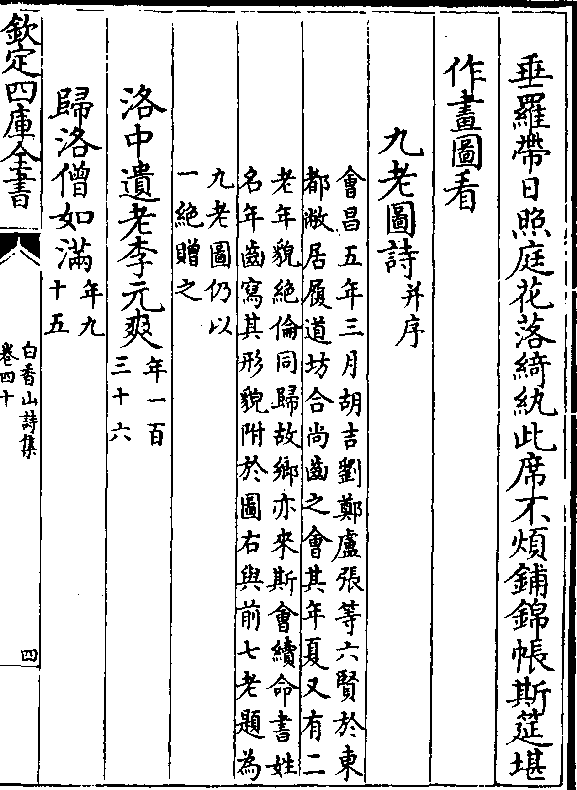 垂羅帶日照庭花落綺紈此席不煩鋪錦帳斯筵堪
作畫圖看
九老圖詩并序
會昌五年三月胡吉劉鄭盧張等六賢於東
都敝居履道坊合尚齒之會其年夏又有二
老年貌絶倫同歸故鄉亦來斯會續命書姓
名年齒寫其形貌附於圖右與前七老題為
九老圖仍以
一絶贈之
洛中遺老李元爽年一百
三十六
歸洛僧如滿年九
十五
欽定四庫全書
白香山詩集
卷四十
四